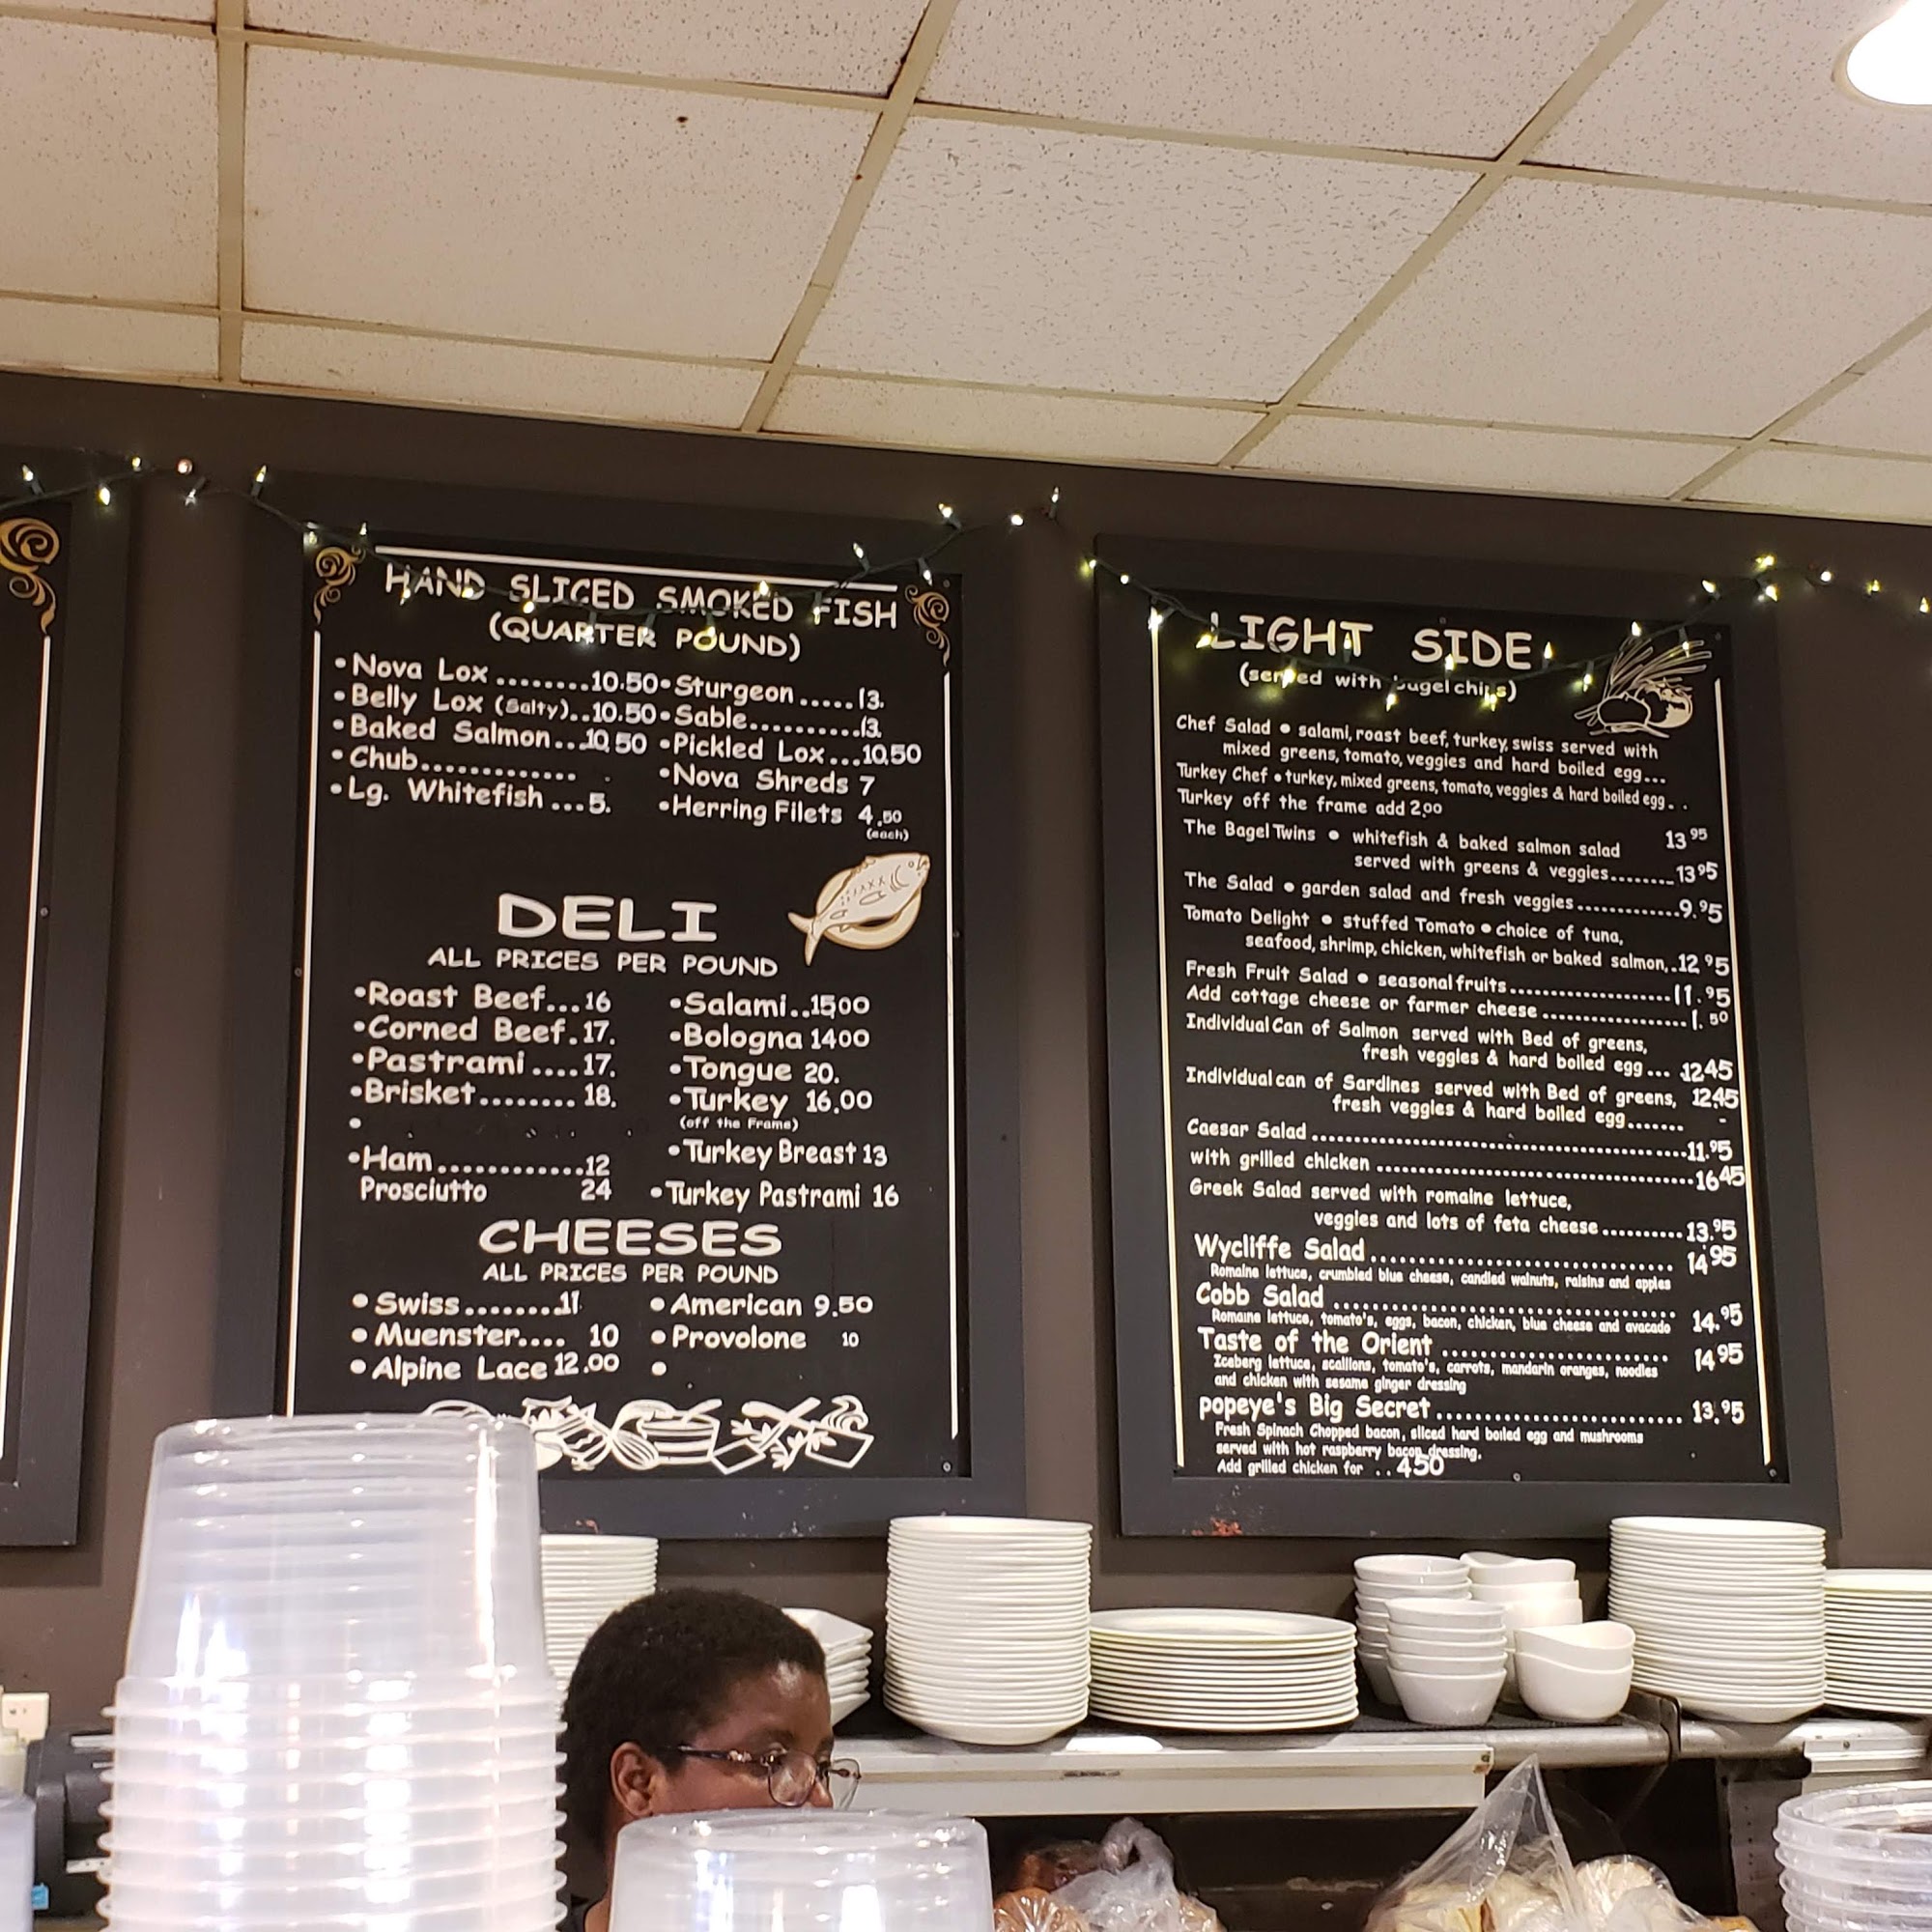 HAND SLICED SMOKED FISH
(QUARTER POUND)
•Nova Lox ........10.50
•Belly Lox (Salty)..10.50
•Baked Salmon...10.50
•Chub.............
•Lg. Whitefish ...5.
•Sturgeon .....13.
•Sable..........13.
•Pickled Lox...10.50
•Nova Shreds 7
•Herring Filets 4.50
(each)
DELI
ALL PRICES PER POUND
•Roast Beef...16
•Corned Beef.17.
•Pastrami ....17.
•Brisket........ 18.
•
•Ham............12
Prosciutto 24
•Salami..15.00
•Bologna 1400
•Tongue 20.
•Turkey 16.00
(off the Frame)
•Turkey Breast 13
•Turkey Pastrami 16
CHEESES
ALL PRICES PER POUND
• Swiss........11
• Muenster.... 10
• Alpine Lace 12.00
• American 9.50
• Provolone 10
•
LIGHT SIDE
(served with bagel chips)
Chef Salad • salami, roast beef, turkey, swiss served with
mixed greens, tomato, veggies and hard boiled egg...
Turkey Chef • turkey, mixed greens, tomato, veggies & hard boiled egg. .
Turkey off the frame add 2.00
13 95
The Bagel Twins • whitefish & baked salmon salad
served with greens & veggies........13 95
The Salad • garden salad and fresh veggies .............9.95
Tomato Delight • stuffed Tomato • choice of tuna,
seafood, shrimp, chicken, whitefish or baked salmon,..12 95
Fresh Fruit Salad • seasonal fruits....................11.95
Add cottage cheese or farmer cheese ..................1.50
Individual Can of Salmon served with Bed of greens,
fresh veggies & hard boiled egg ... 1245
Individual can of Sardines served with Bed of greens, 12.45
fresh veggies & hard boiled egg.......
Caesar Salad .............................................11.95
with grilled chicken ......................................1645
Greek Salad served with romaine lettuce,
veggies and lots of feta cheese ..........13.95
Wycliffe Salad .................................... 14 95
Romaine lettuce, crumbled blue cheese, candied walnuts, raisins and apples
Cobb Salad ........................................ 14.95
Romaine lettuce, tomato's, eggs, bacon, chicken, blue cheese and avacado
Taste of the Orient ........................... 14 95
Iceberg lettuce, scallions, tomato's, carrots, mandarin oranges, noodles
and chicken with sesame ginger dressing
popeye's Big Secret ............................. 13.95
Fresh Spinach Chopped bacon, sliced hard boiled egg and mushrooms
served with hot raspberry bacon dressing.
Add grilled chicken for . . 450